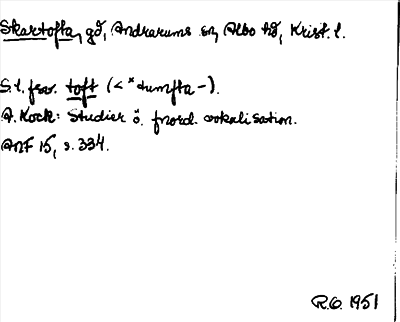 Skartofta, gd, Andrarums sn, Albo hd, Krist. l.
S.l. fsv. toft (< *tumfta-).
A. Kock: Studier ö. fnord. vokalisation.
ANF 15, s. 334.
R.G. 1951